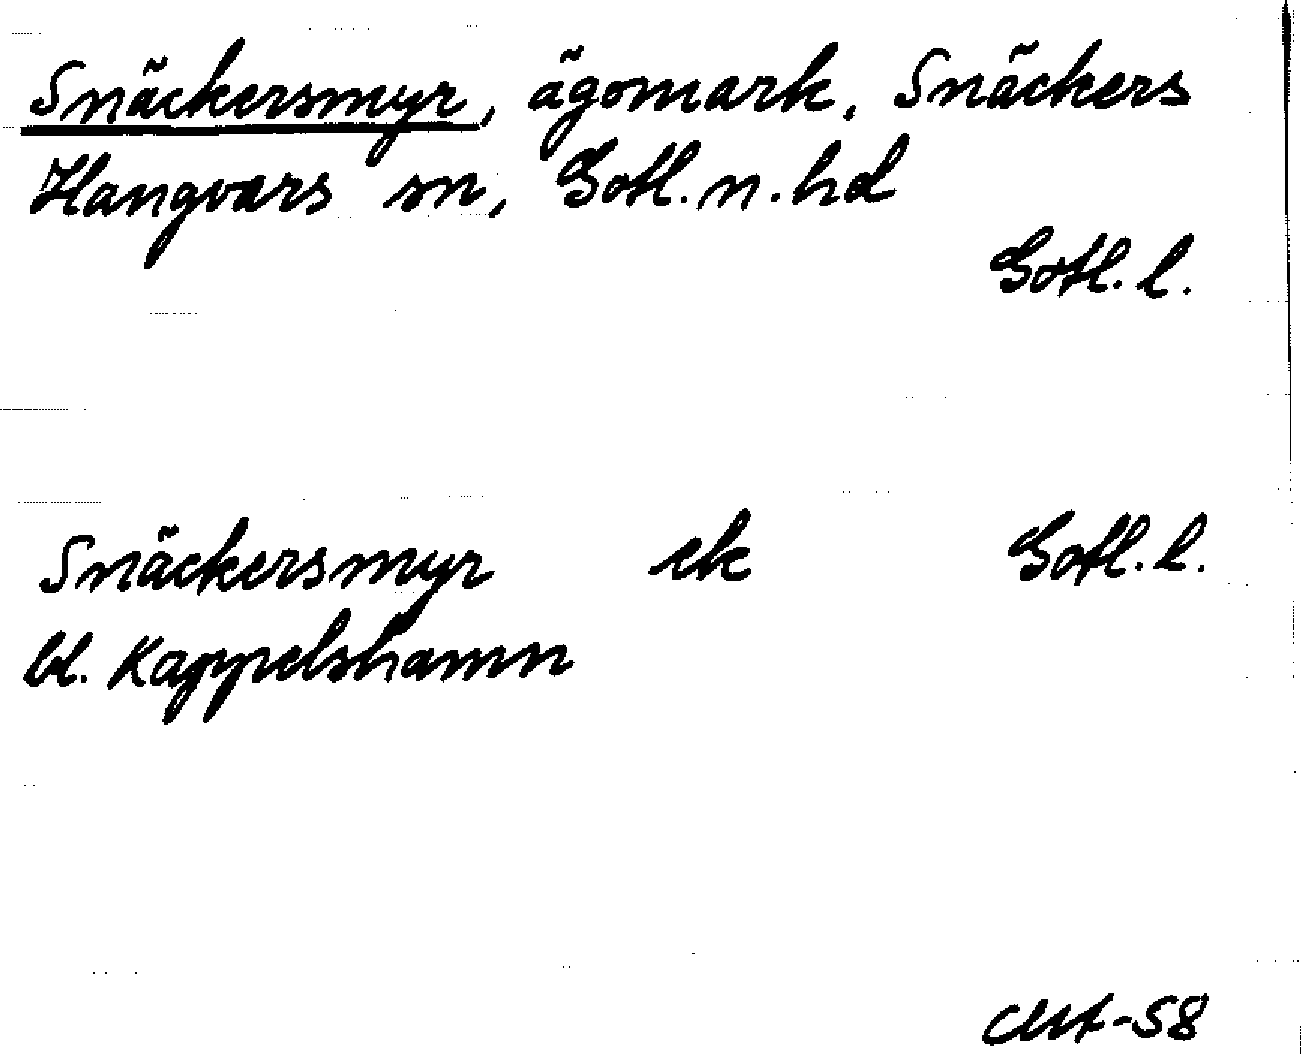 Snäckersmyr, ägomark, Snäckers
Hangvars sn, Gotl. n. hd
Gotl. l.
Snäckersmyr ek Gotl. l.
bl. Kappelshamn
-58